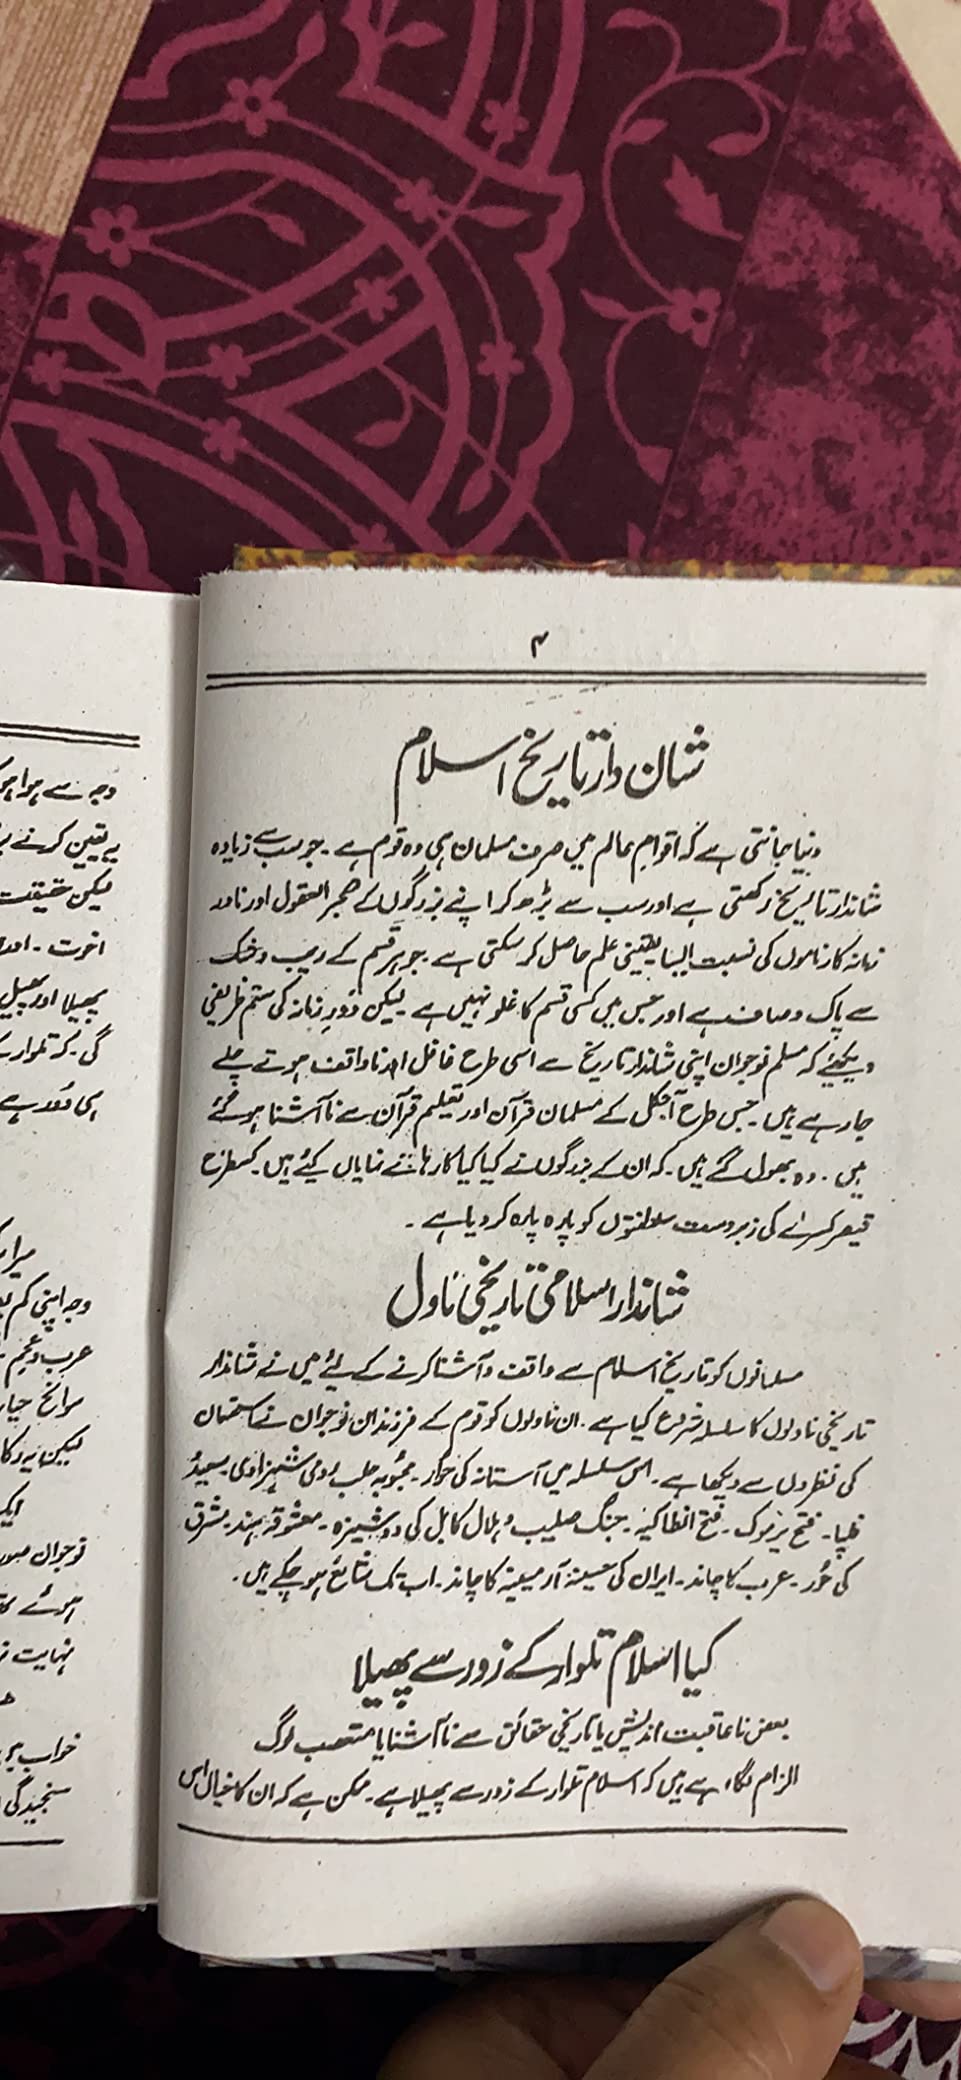 ۴
شان دار تاریخ اسلام
دنیا جانتی ہے کہ اقوامِ عالم میں صرف مسلمان ہی وہ قوم ہے۔ جو سب سے زیادہ
شاندار تاریخ رکھتی ہے اور سب سے بڑھ کر اپنے بزرگوں کے محیر العقول اور نادر
زمانہ کارناموں کی نسبت ایسا یقینی علم حاصل کر سکتی ہے۔ جو ہر قسم کے ریب و شک
سے پاک و صاف ہے اور جس میں کسی قسم کا غلو نہیں ہے۔ لیکن دَورِ زمانہ کی ستم ظریفی
دیکھئیے کہ مسلم نوجوان اپنی شاندار تاریخ سے اسی طرح غافل اور ناواقف ہوتے چلے
جا رہے ہیں۔ جس طرح آجکل کے مسلمان قرآن اور تعلیم قرآن سے ناآشنا ہو گئے
ہیں۔ وہ بھول گئے ہیں۔ کہ ان کے بزرگوں نے کیا کیا کارہائے نمایاں کیئے ہیں۔ کسطرح
قیصر کسریٰ کی زبردست سلطنتوں کو پارہ پارہ کر دیا ہے۔
شاندار اسلامی تاریخی ناول
مسلمانوں کو تاریخ اسلام سے واقف و آشنا کرنے کے لیئے میں نے شاندار
تاریخی ناولوں کا سلسلہ شروع کیا ہے۔ ان ناولوں کو قوم کے فرزندان نوجوان نے استحسان
کی نظروں سے دیکھا ہے۔ اس سلسلہ میں آستانہ کی حور۔ محبوبہ حلب رومی شہزادی۔ سعیدُ
فلپا۔ فتح یرموک۔ فتح انطاکیہ۔ جنگ صلیب و ہلال کابل کی دوشیزہ۔ معشوقہ ہند۔ مشرق
کی حُور۔ عرب کا چاند۔ ایران کی حسینہ آرمینیہ کا چاند۔ اب تک شائع ہو چکے ہیں۔
کیا اسلام تلوار کے زور سے پھیلا
بعض ناعاقبت اندیش یا تاریخی حقائق سے ناآشنا یا متعصب لوگ
الزام لگا رہے ہیں کہ اسلام تلوار کے زور سے پھیلا ہے۔ ممکن ہے کہ ان کا خیال اس
وجہ سے ہوا ہو
یہ یقین کرنے
لیکن حقیقت
اخوت۔
پھیلا اور
گی۔ کہ تلوار
ہی دَور ہے
وجہ اپنی کم
عرب و عجم
سوانح
لیکن یہ
نوجوان
ہوئے
نہایت
خواب
سنجیدگی